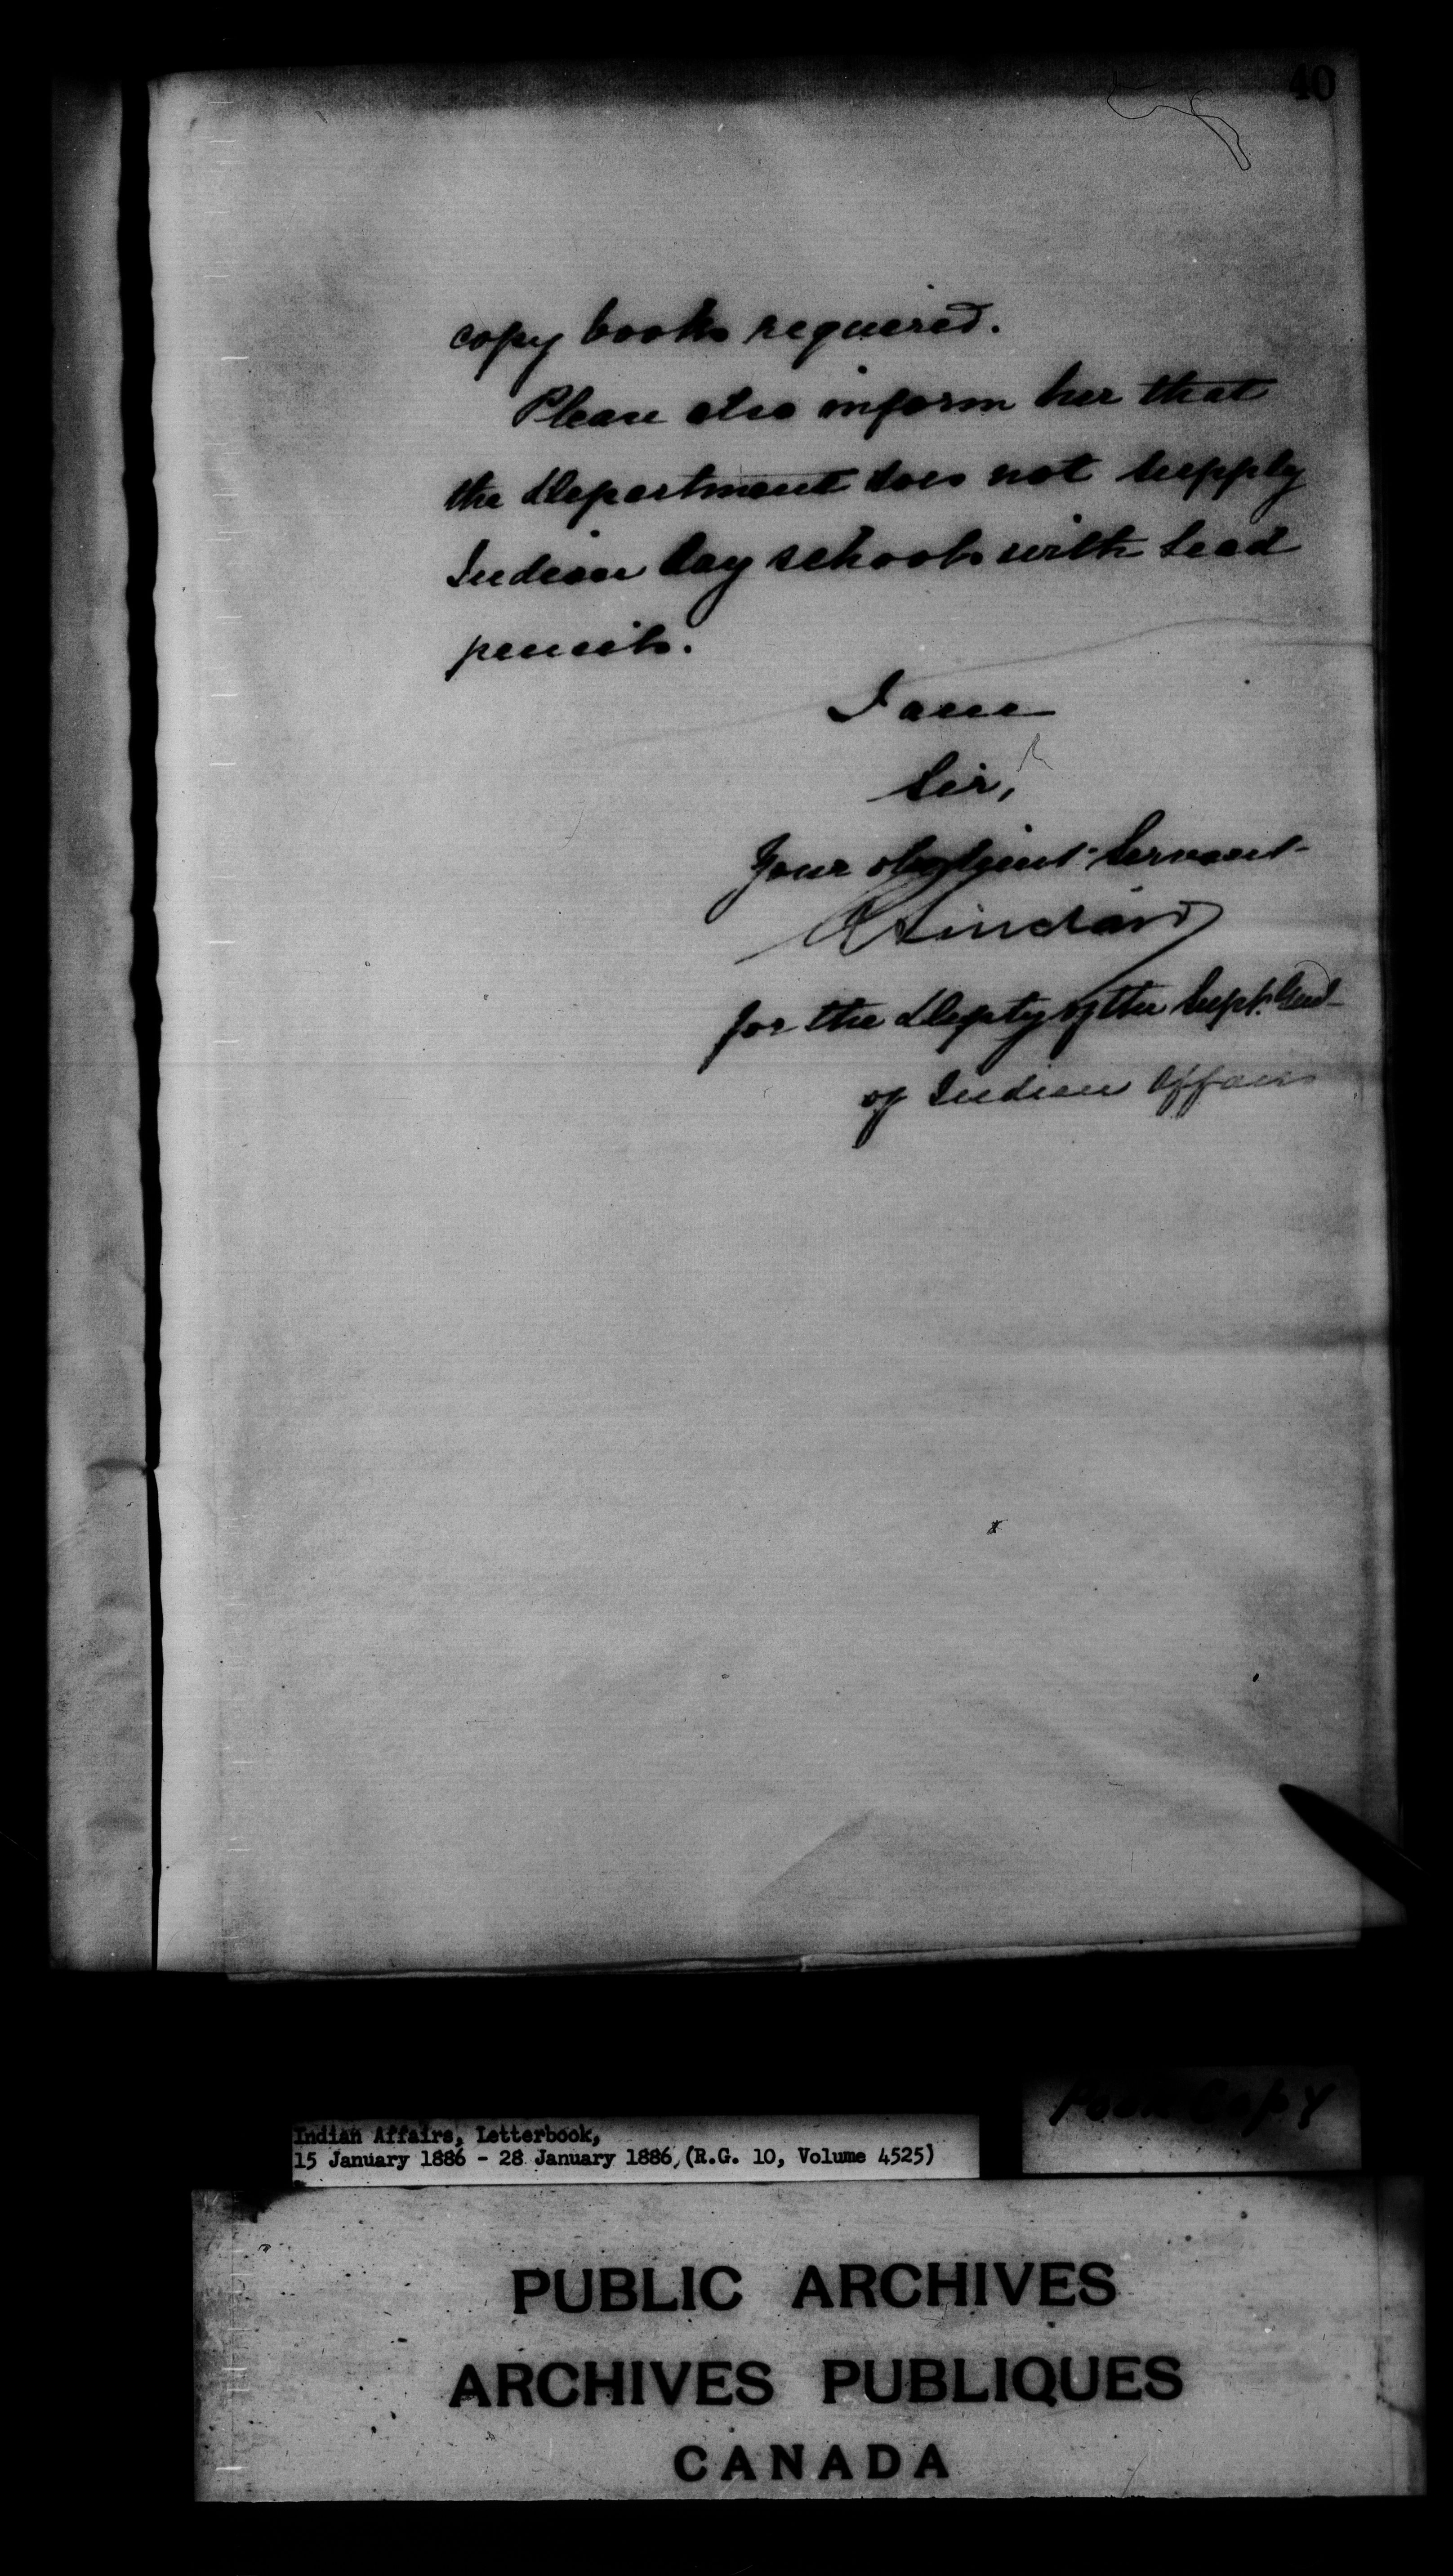 40
copy books required.
Please also inform her that
the Department does not supply
Indian Day schools with lead
pencils.
I am
Sir,
Your obedient Servant
R Sinclair
for the Depty of the Supt. Genl
of Indian Affairs
Poor Copy
Indian Affairs, Letterbook,
15 January 1886 - 28 January 1886, (R.G. 10, Volume 4525)
PUBLIC ARCHIVES
ARCHIVES PUBLIQUES
CANADA